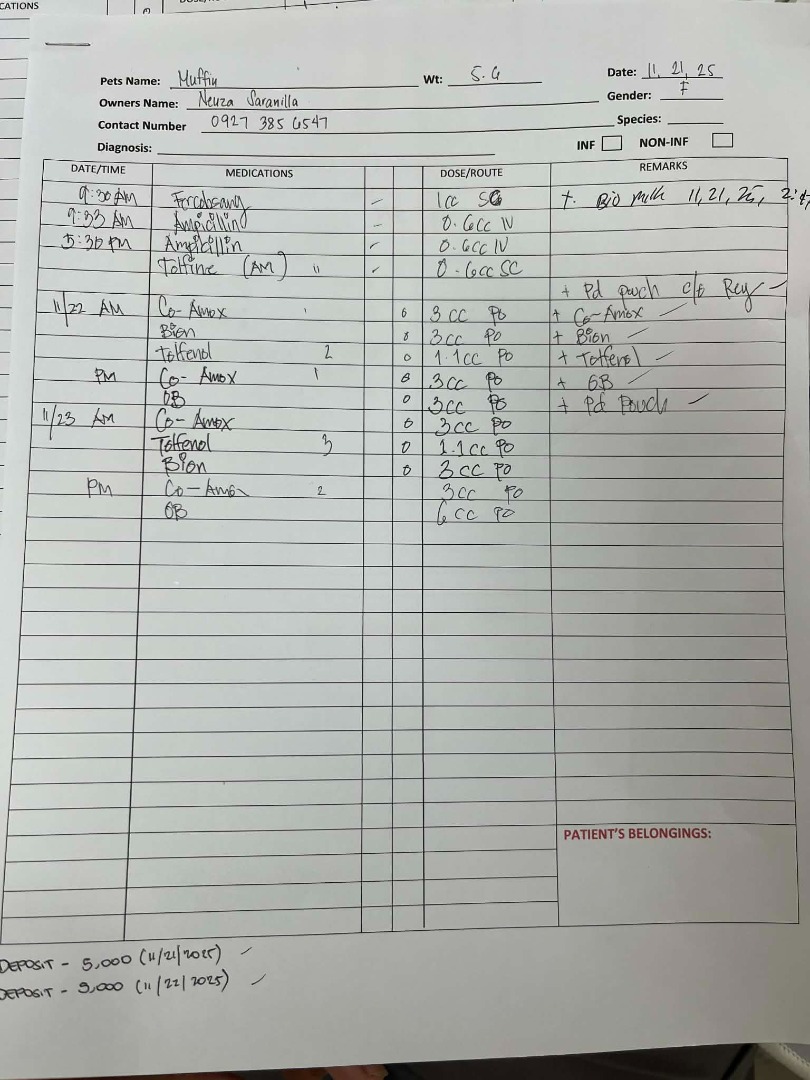 CATIONS
Pets Name: Muffin Wt: 5.6 Date: 11, 21, 25
Owners Name: Neuza Saranilla Gender: F
Contact Number 0927 385 6547 Species:
Diagnosis: INF NON-INF
DATE/TIME MEDICATIONS DOSE/ROUTE REMARKS
9:30 AM 1cc SC +. Bio milk 11, 21, 25,
9:33 AM Ampicillin 0.6cc IV
5:30 PM Ampicillin 0.6cc IV
Tolfine (AM) 0.6cc SC
+ Pd pouch c/o Rey
11/22 AM Co-Amox 3 cc PO + Co-Amox
Bion 3cc PO + Bion
Tolfenol 2 1.1cc PO + Tolfenol
PM Co-Amox 1 3cc PO + OB
OB 3cc PO + Pd Pouch
11/23 AM Co-Amox 3cc PO
Tolfenol 3 1.1cc PO
Bion 3cc PO
PM Co-Amox 2 3cc PO
OB 6cc PO
PATIENT'S BELONGINGS:
DEPOSIT - 5,000 (11/21/2025)
DEPOSIT - 3,000 (11/22/2025)